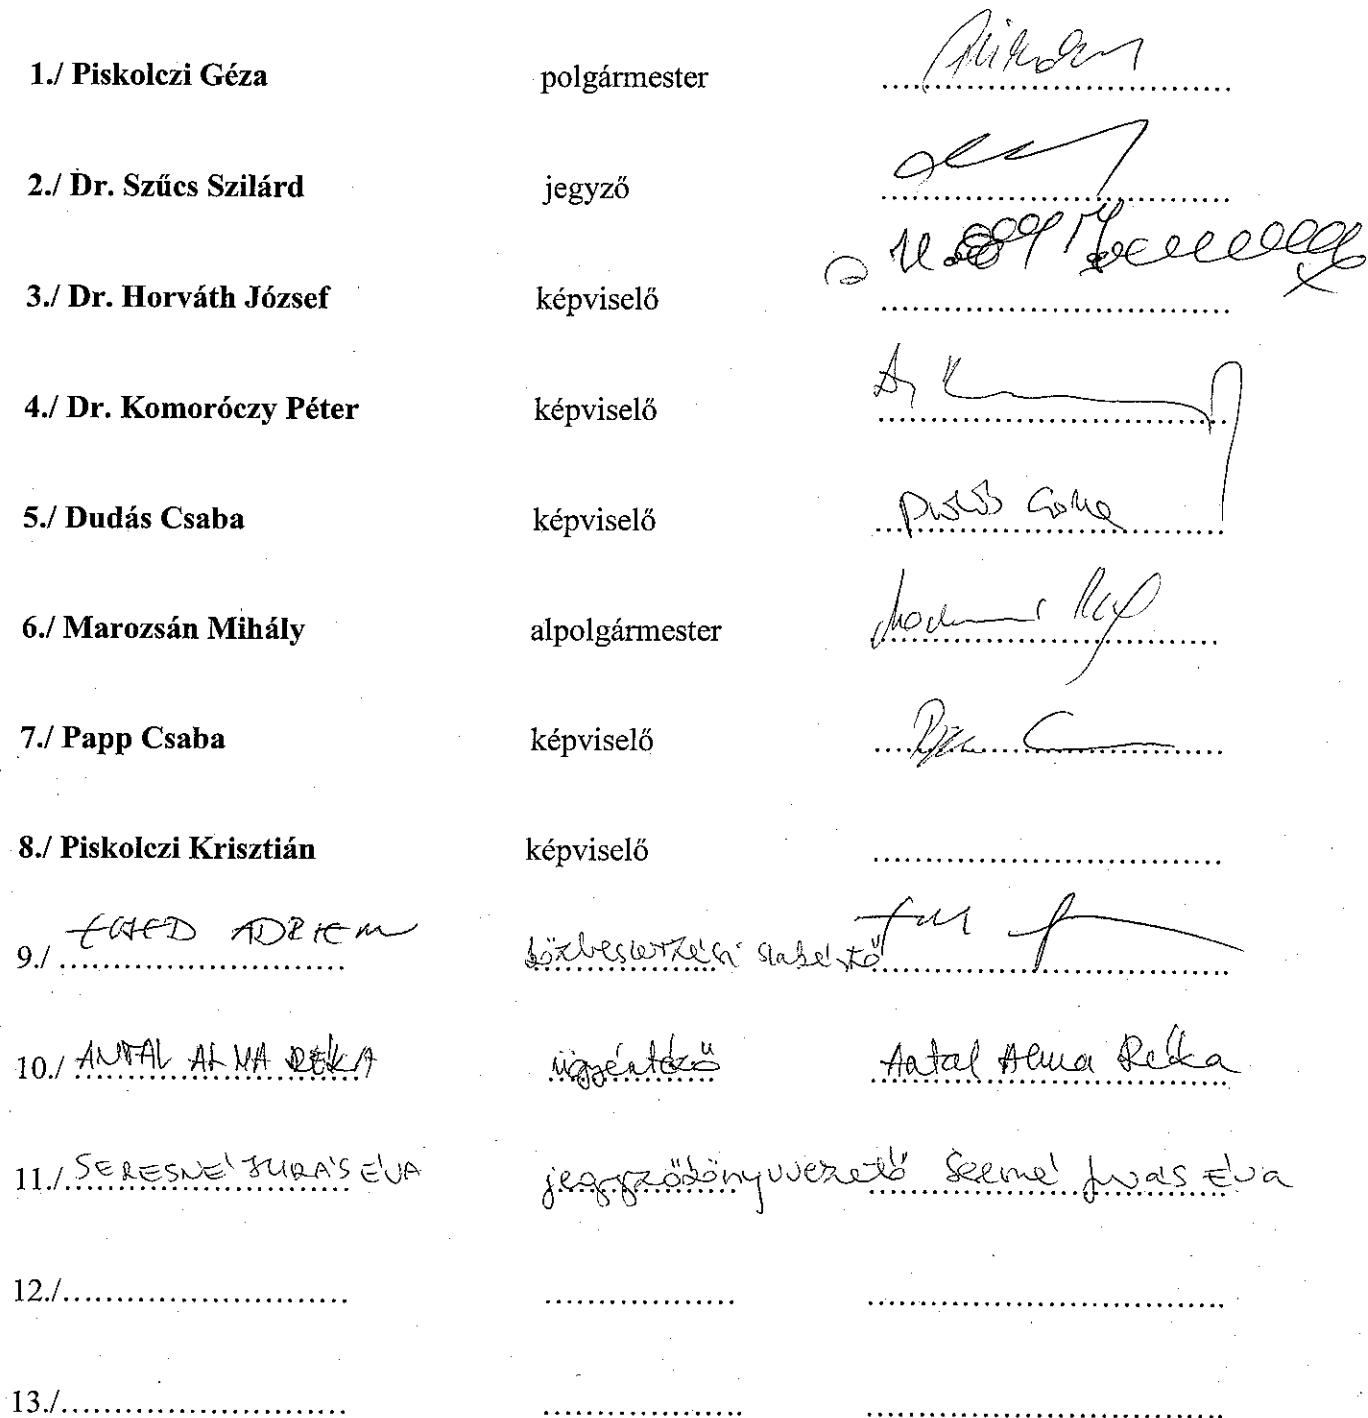 1./ Piskolczi Géza polgármester ................................
2./ Dr. Szűcs Szilárd jegyző ................................
3./ Dr. Horváth József képviselő ................................
4./ Dr. Komoróczy Péter képviselő ................................
5./ Dudás Csaba képviselő Dudás Csaba
6./ Marozsán Mihály alpolgármester ................................
7./ Papp Csaba képviselő ................................
8./ Piskolczi Krisztián képviselő ................................
9./ közbeszerzési
10./ ANTAL ALMA RÉKA ügyintéző Antal Alma Réka
11./ SERESNÉ JURÁS ÉVA jegyzőkönyvvezető Seresné Jurás Éva
12./.......................... .................. ................................
13./.......................... .................. ................................